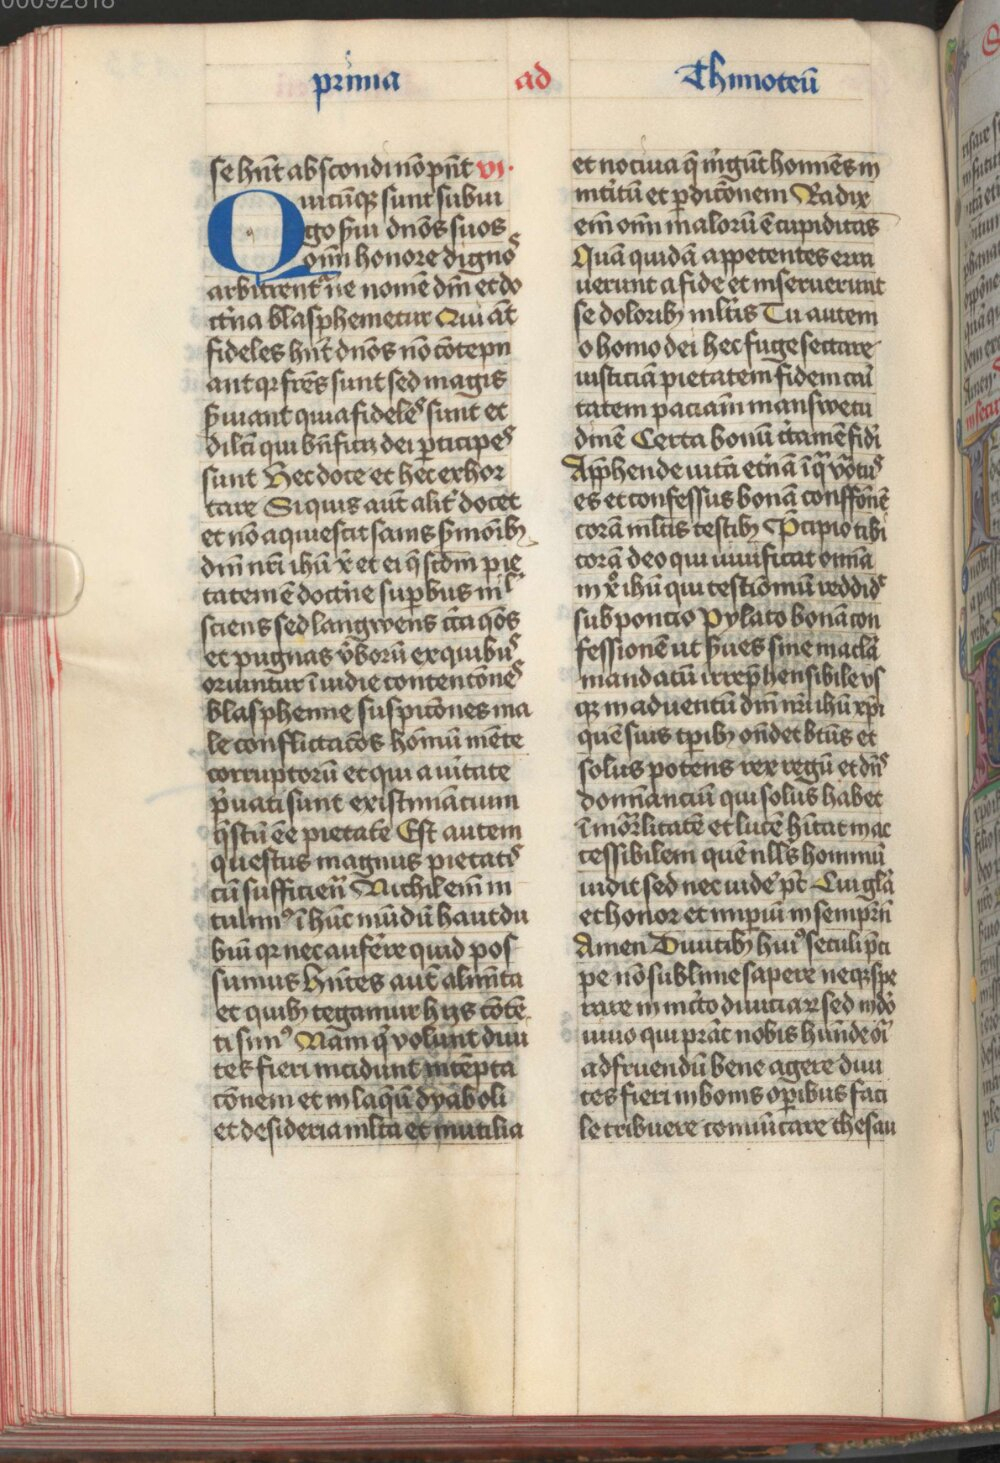 00092818
prima ad Thimoteū
se hn̄t abscondi nō pn̄t vi.
Quicūq; sunt sub iu
go s̄ui dn̄os suos
om̄i honore dignos
arbitrent̄ ne nomē dn̄i et do
ctⁱna blasphemetur Qui aūt
fideles hn̄t dn̄os nō cōtepn
ant qꝛ fr̄es sunt sed magis
s̄uiant quia fideles sunt et
dilc̄i qui bn̄ficij dei ꝑticipes
sunt Hec doce et hec exhor
tare Siquis aūt alit̄ docet
et nō aquiescit sanis s̄monib;
dn̄i nr̄i ihū x̄ et ei q̄ scd̄m pie
tatem ē doctⁱne suꝑbus nil
sciens sed langwens circa q̄ōs
et pugnas v̄borū ex quibus
oriuntur īuidie contentōnes
blasphemie suspitōnes ma
le conflictatōs hōinū mēte
corruptorū et qui a v̄itate
pⁱuati sunt existimātium
q̄stū ēē pietatē Est autem
questus magnus pietatis
cū sufficien̄ Nichil enī in
tulim⁹ ī hūc mūdū haut du
biū qꝛ nec auferre quid pos
sumus Hn̄tes aūt alimēta
et quib; tegamur hijs cōtē
ti sim⁹ Nam qⁱ volunt diui
tes fieri incidunt in tēpta
cōnem et in laqūe dyaboli
et desideria ml̄ta et inutilia
et nociua q̄ m̄gūt homines in
int̄itū et ꝑditōnem Radix
enī om̄i malorū ē cupiditas
Quā quidā appetentes erra
uerunt a fide et inseruerunt
se dolorib; ml̄tis Tu autem
o homo dei hec fuge sectare
iusticiā pietatem fidem cari
tatem paciam̄ manswetu
dinē Certa bonū c̄tamē fidi
App̄hende uitā et̄nā ī qᵃ vo͞tus
es et confessus bonā conffōnē
corā ml̄tis testib; P̄cipio tibi
corā deo qui uiuificat om̄ia
in x̄ō ihū qui testīomū reddidᵗ
sub poncio Pylato bonā con
fessionē ut s̄ues sine macla
mandatū irrep̄hensibile vs
qꝫ in aduentū dn̄i nr̄i ihū xp̄i
quē suis tꝑib; on̄det bt̄us et
solus potens rex regū et dn̄s
dominanciū qui solus habet
ī mōr̄litatē et lucē hītat in ac
cessibilem quē nll̄s hominū
uidit sed nec uidē pt̄ Cui glā
et honor et imꝑiū in sempⁱn̄
Amen Diuitib; hui⁹ seculi p̄ci
pe nō sublime sapere neqꝫ spe
rare in inc̄to diuiciaꝝ sed in dō
uiuo qui p̄stat nobis hūnde oīa
ad fruendū bene agere diui
tes fieri in bonis oꝑibus faci
le tribuere comūicare thesau